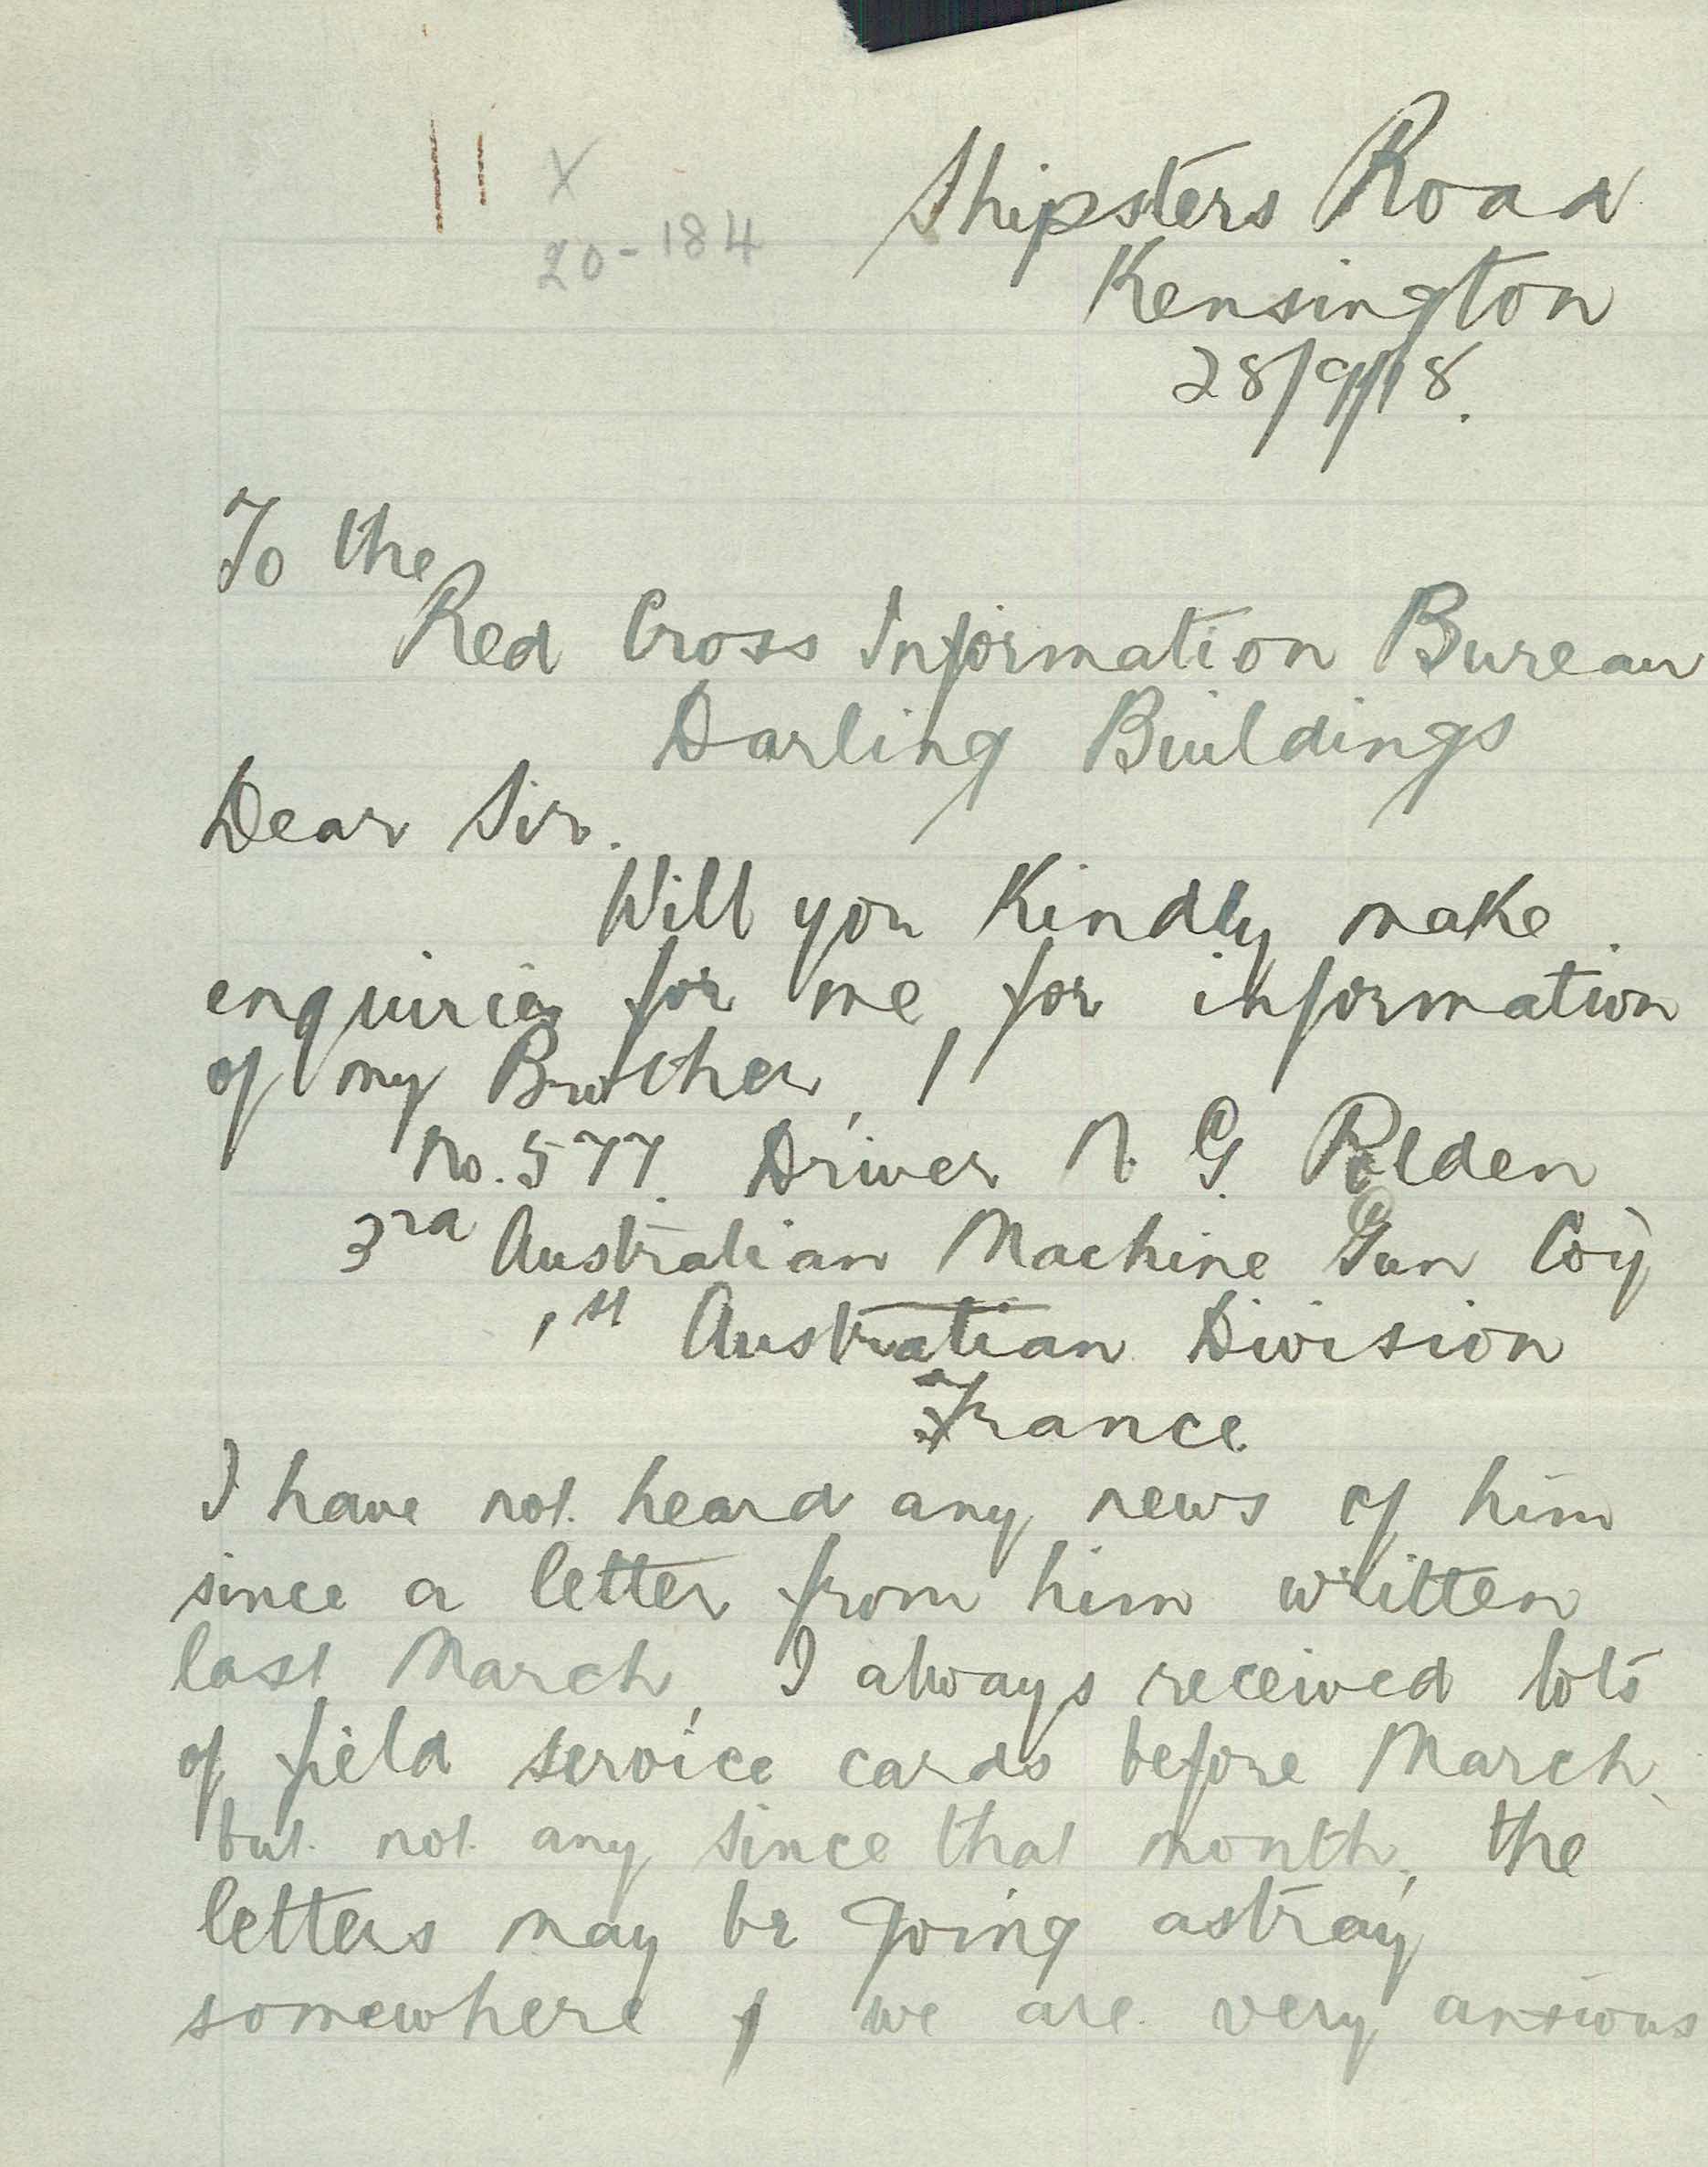 11 X
20-184
Shipsters Road
Kensington
28/9/18.
To the
Red Cross Information Bureau
Darling Buildings
Dear Sir.
Will you Kindly make
enquiries for me, for information
of my Brother,
No. 577. Driver N. G. Polden
3rd Australian Machine Gun Coy
1st Australian Division
France
I have not heard any news of him
since a letter from him written
last March, I always received lots
of field service cards before March,
but not any since that month, the
letters may be going astray
somewhere, we are very anxious